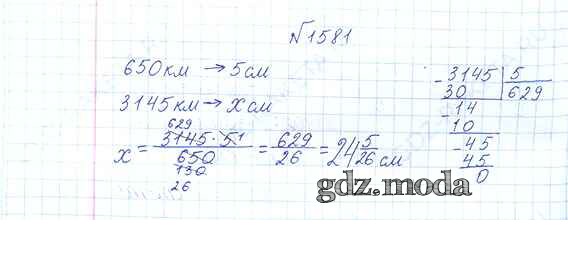 №1581
650км → 5см
3145км → x см
629
x = 3145·5 1 / 650 = 629/26 = 24 5/26 см
130
26
- 3145 | 5
30 | 629
- 14
10
- 45
45
0
gdz.moda